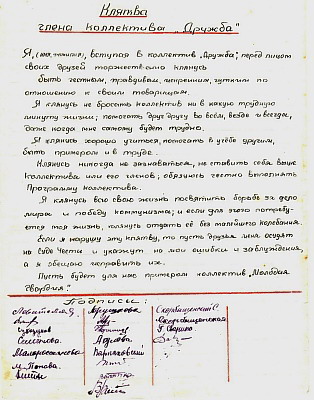 Клятва
члена коллектива „Дружба"
Я, (имя, фамилия), вступая в коллектив „Дружба", перед лицом
своих друзей торжественно клянусь
быть честным, правдивым, искренним, чутким по
отношению к своим товарищам.
Я клянусь не бросать коллектив ни в какую трудную
минуту жизни; помогать друг другу во всём, везде и всегда,
даже когда мне самому будет трудно.
Я клянусь хорошо учиться, помогать в учёбе другим,
быть примером и в труде.
Клянусь никогда не зазнаваться, не ставить себя выше
коллектива или его членов; обязуюсь честно выполнять
Программу коллектива.
Я клянусь всю свою жизнь посвятить борьбе за дело
мира и победу коммунизма; и если для этого потребу-
ется моя жизнь, клянусь отдать её без малейшего колебания.
Если я нарушу эту клятву, то пусть друзья меня осудят
на Суде Чести и укажут на мои ошибки и заблуждения,
а я обещаю исправить их.
Пусть будет для нас примером коллектив „Молодая
гвардия"!
Подписи:
М. Попова